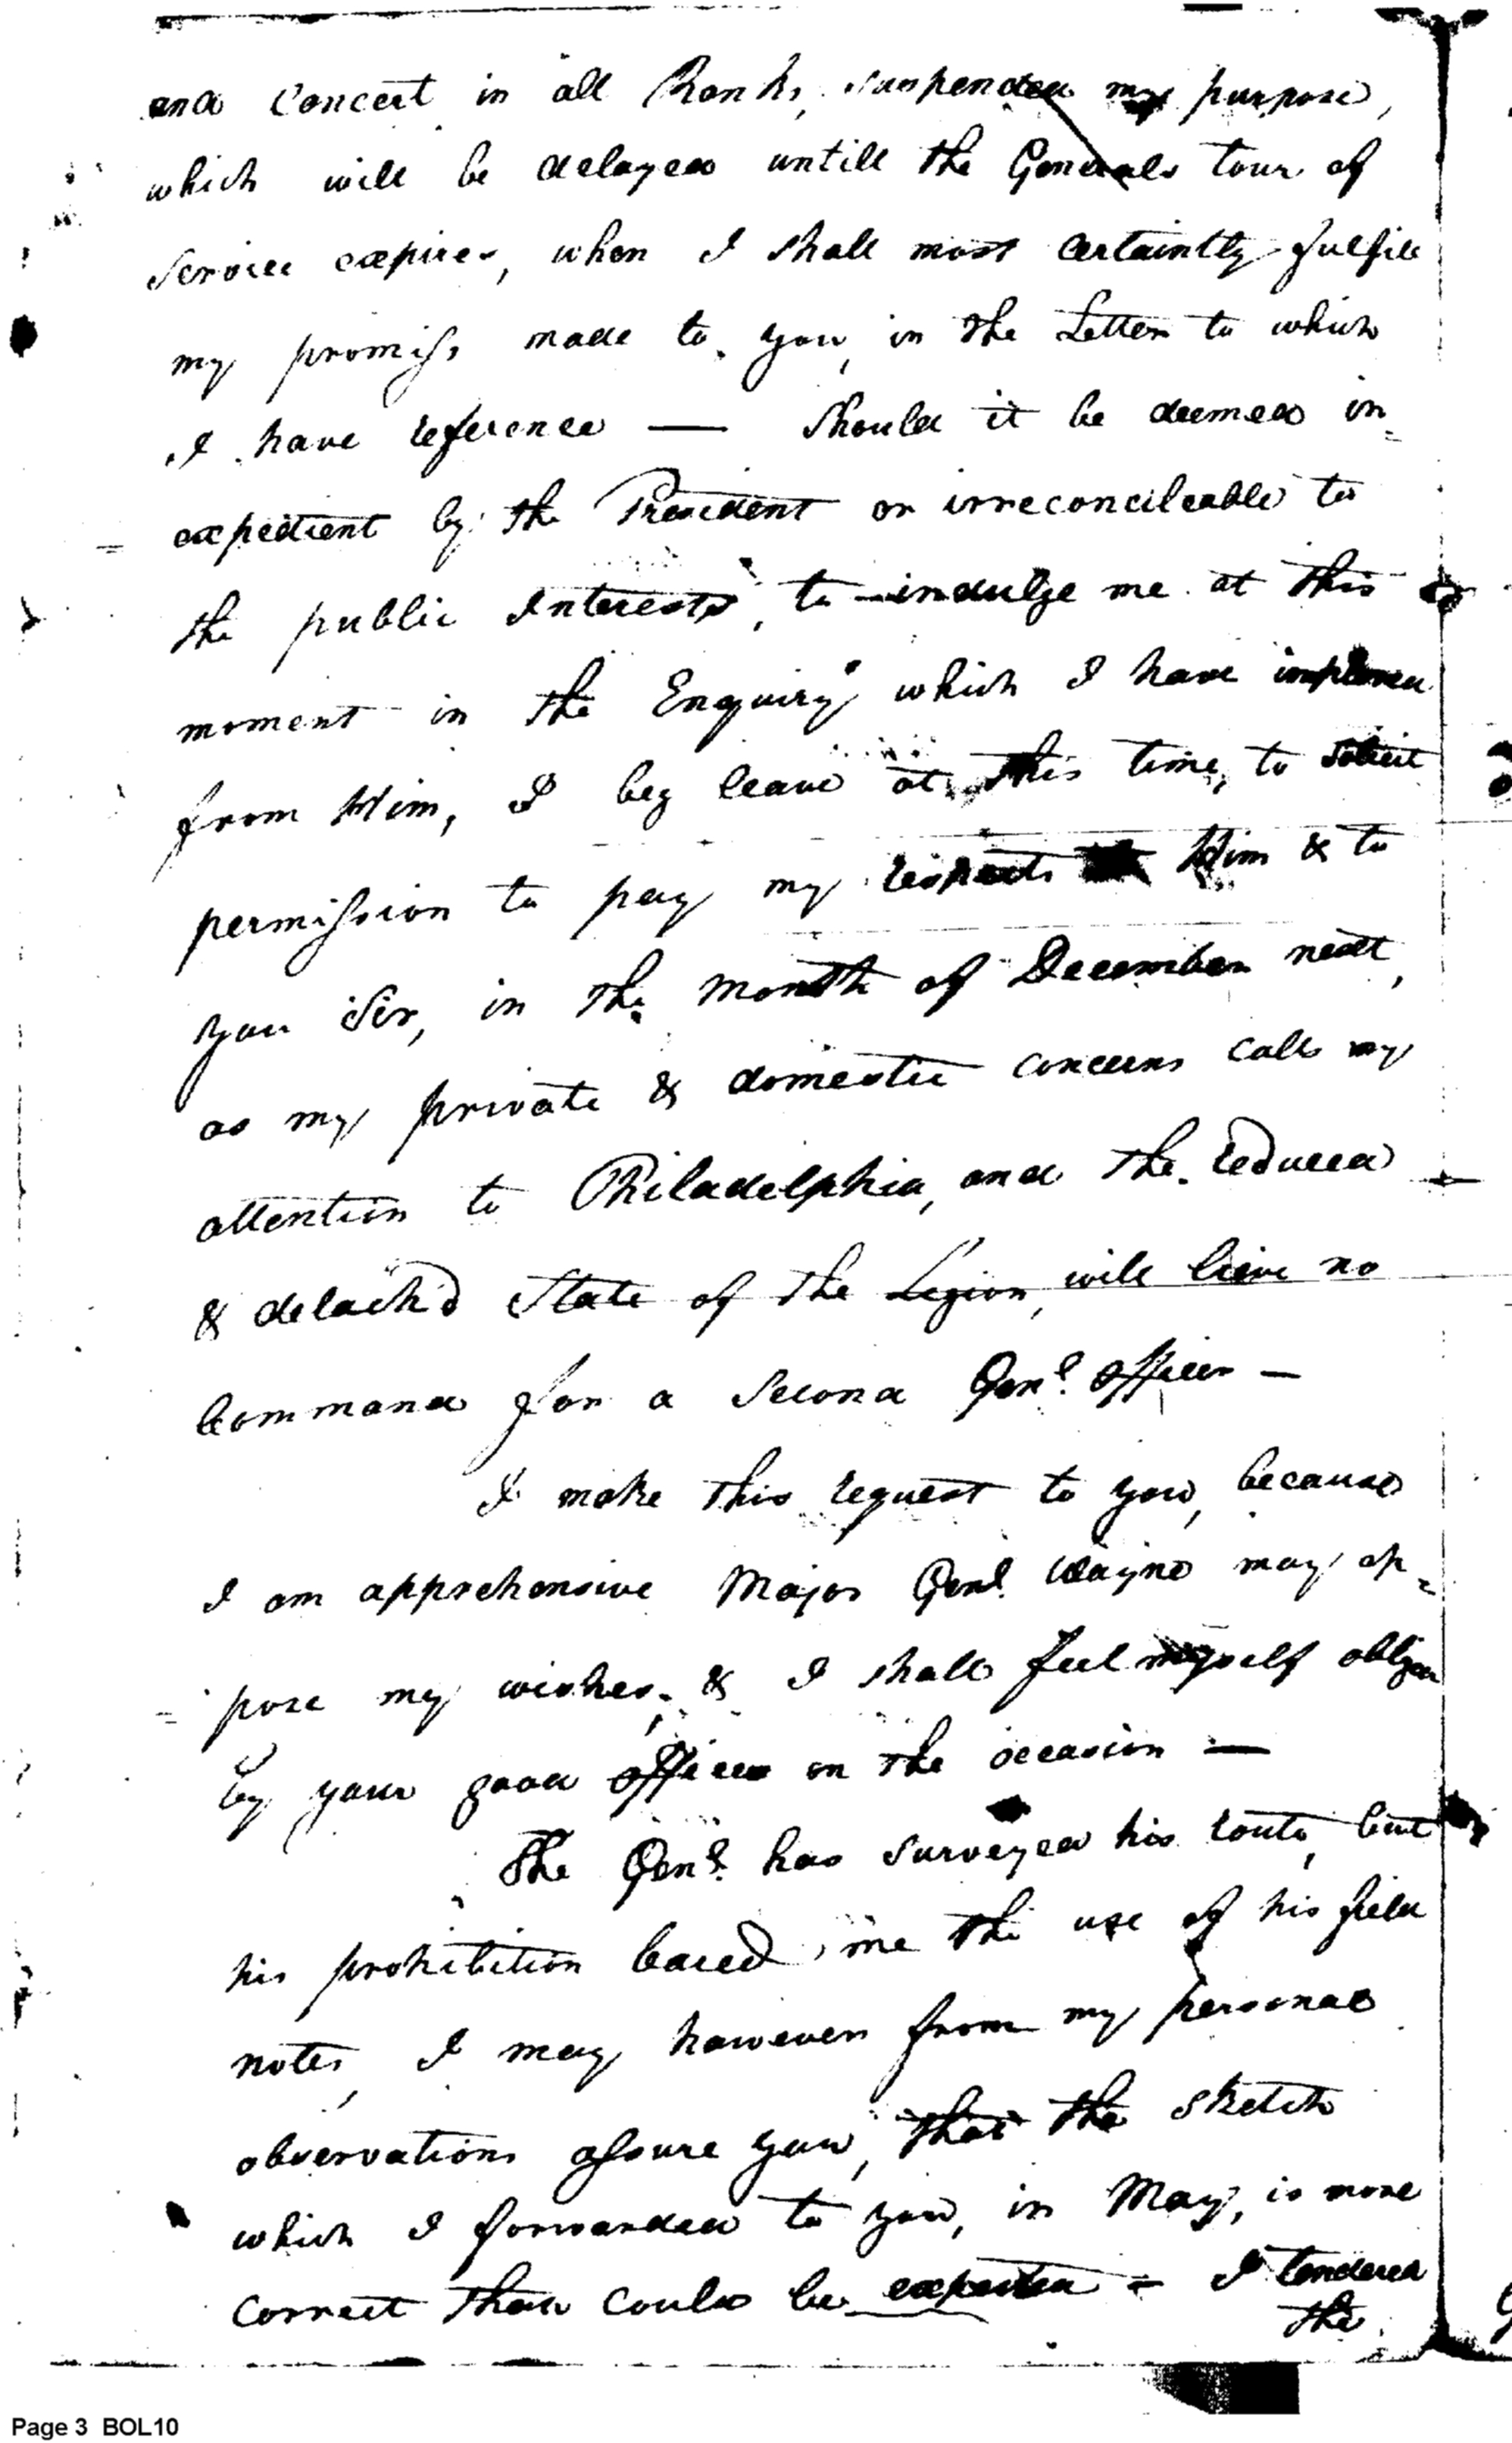 and Concert in all Ranks, suspended my purpose,
which will be delayed untill the Generals tour of
Service expires, when I shall most certaintly fulfill
my promiss made to you, in the Letter to which
I have reference — Should it be deemed in=
=expedient by the President or irreconcileable to
the public Interests, to indulge me at this
moment in the Enquiry which I have implored
from Him, I beg leave at this time, to solicit
permission to pay my respects Him & to
you Sir, in the month of December next,
as my private & domestic concerns call my
attention to Philadelphia, and the reduced
& detach'd State of the Legion, will lieve no
Command for a Second Genl. officer —
I make this request to you, because
I am apprehensive Major Genl. Wayne may op=
=pose my wishes, & I shall feel myself obliged
by your good offices on the occasion —
The Genl. has surveyed his route, but
his prohibition bared me the use of his field
notes, I may however from my personal
observations assure you, that the sketch
which I forwarded to you, in May, is more
correct than could be expected — I tendered
the
Page 3 BOL10